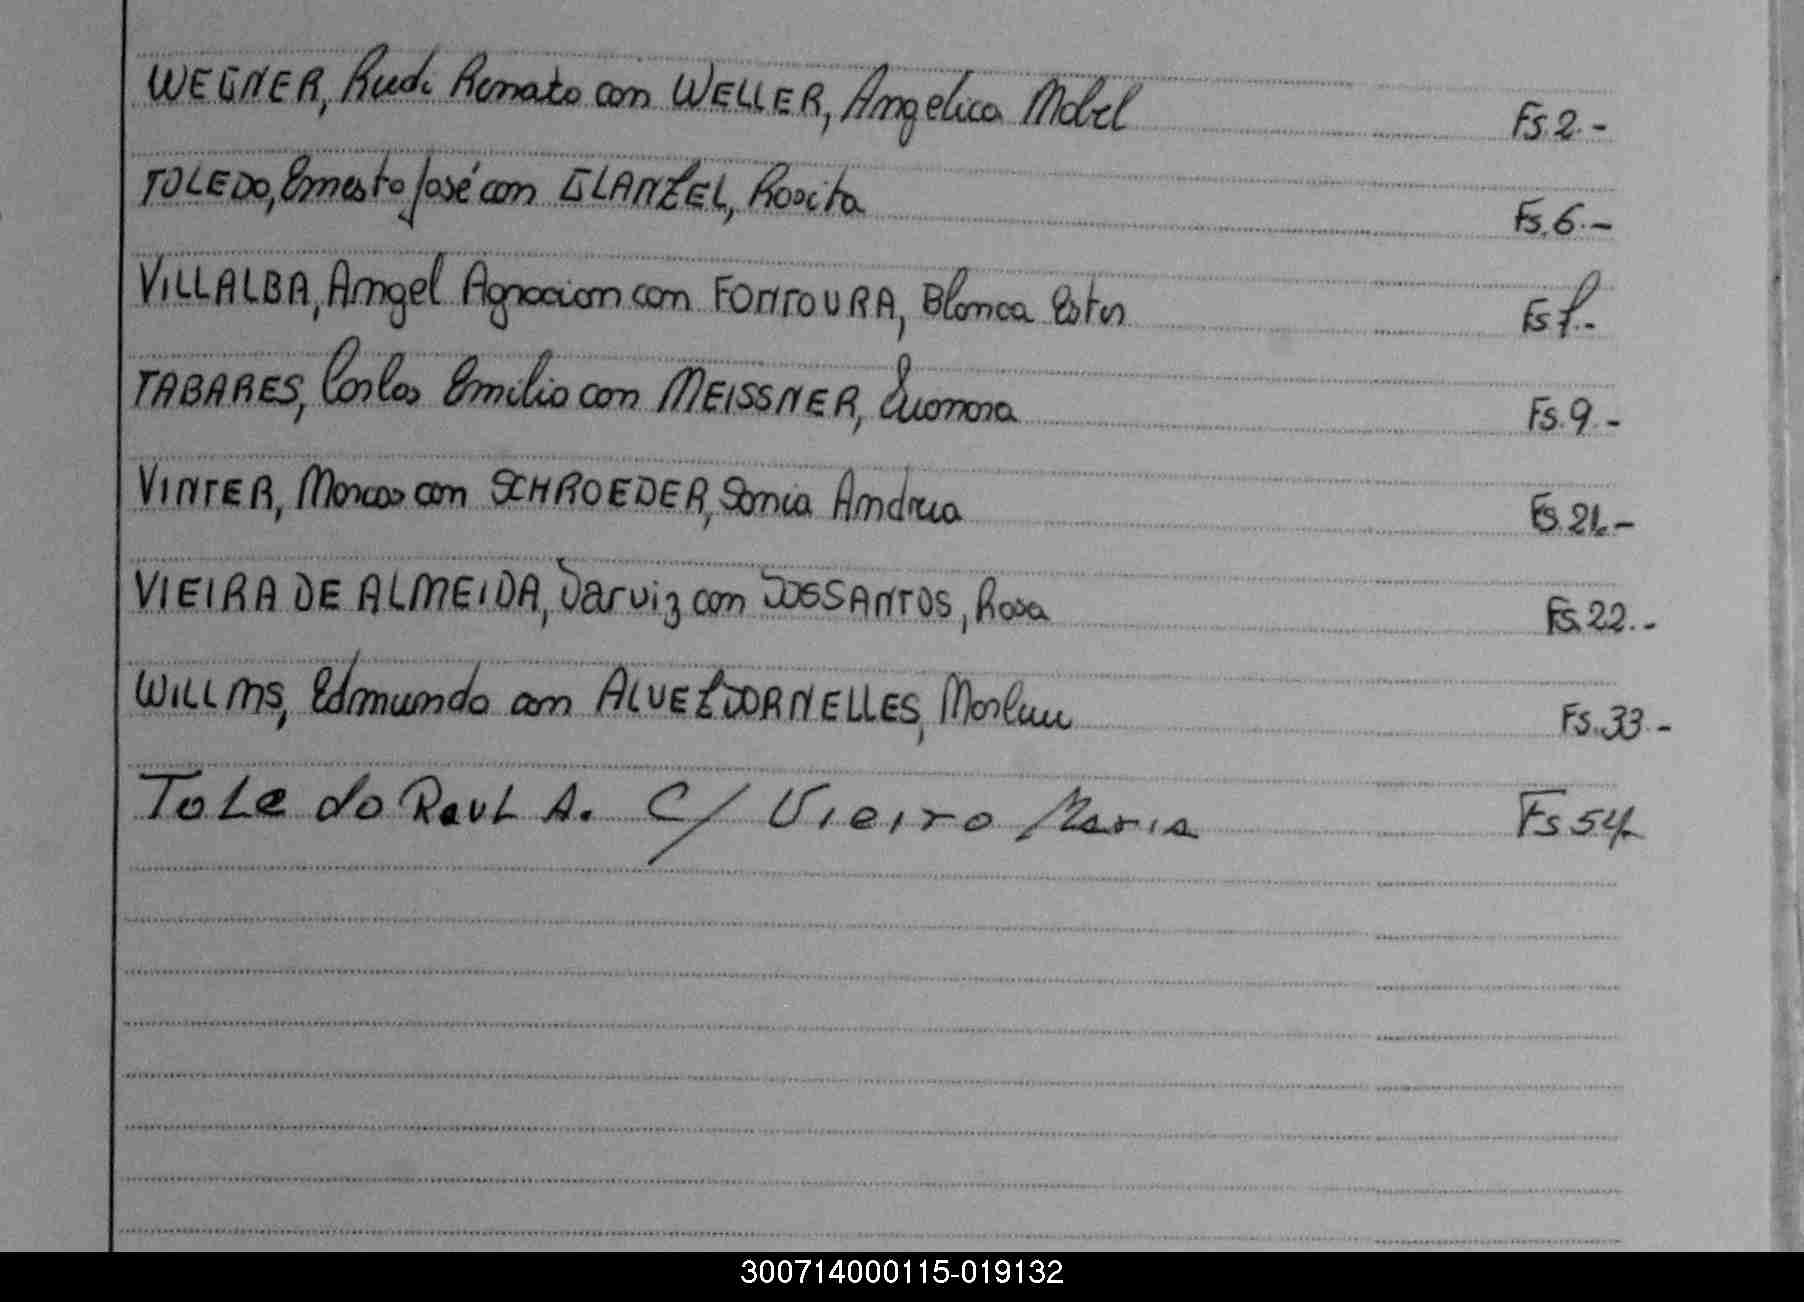 WEGNER, Rudi Renato con WELLER, Angelica Mabel Fs.2.-
TOLEDO, Ernesto José con GLANZEL, Rosita Fs.6.-
VILLALBA, Angel Agnocion con FONTOURA, Blanca Ester Fs 7.-
TABARES, Carlos Emilio con MEISSNER, Fs.9.-
VINTER, Marcos con SCHROEDER, Sonia Andrea Fs.21.-
VIEIRA DE ALMEIDA, Darviz con DOSSANTOS, Rosa Fs.22.-
WILLMS, Edmundo con ALVEZ DORNELLES, Marlene Fs.33.-
Toledo Raul A. C/ Vieiro Maria Fs 54
300714000115-019132